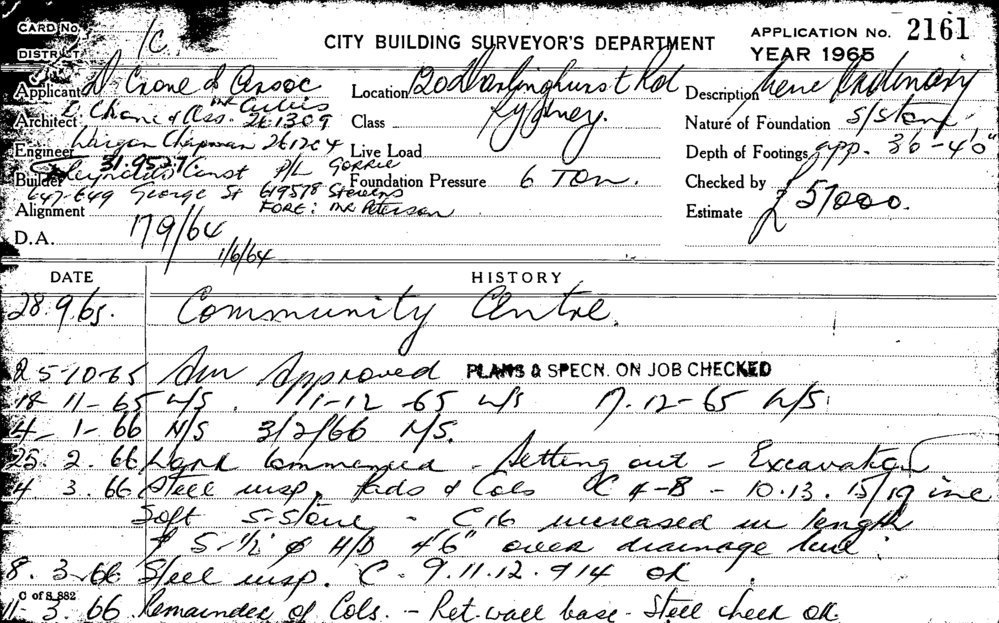 CARD No.
DISTRICT 1C
CITY BUILDING SURVEYOR'S DEPARTMENT
APPLICATION No. 2161
YEAR 1965
Applicant D Crone & Assoc
Location Darlinghurst Rd
Sydney.
Description
Architect D Crone & Ass. 26.1309
Class
Nature of Foundation S/stone
Engineer Wargon Chapman
Live Load
Depth of Footings app. 36-40"
31.9527
Builder Const P/L GORRIE
Foundation Pressure 6 Ton.
Checked by
647-649 George St 619578 Stevens
Alignment
FORE: MR Peterson
Estimate £57000.
D.A. 179/64
1/6/64
DATE HISTORY
28.9.65. Community Centre.
25-10-65 Approved PLANS & SPECN. ON JOB CHECKED
18-11-65 N/S. 1-12-65 N/S 7.12-65 N/S
4-1-66 N/S 3/2/66 N/S.
25.2.66 Work commenced - Setting out - Excavation
4 3.66 Steel insp. Pads & Cols C 4-8 - 10.13.15/19 inc
Soft S-Stone - C16 increased in length
& 5-½" φ H/D 4'6" over drainage line.
8.3.66 Steel insp. C. 9.11.12.&14 OK
C of S 882
11-3.66 Remainder of Cols. - Ret-wall base - Steel check OK